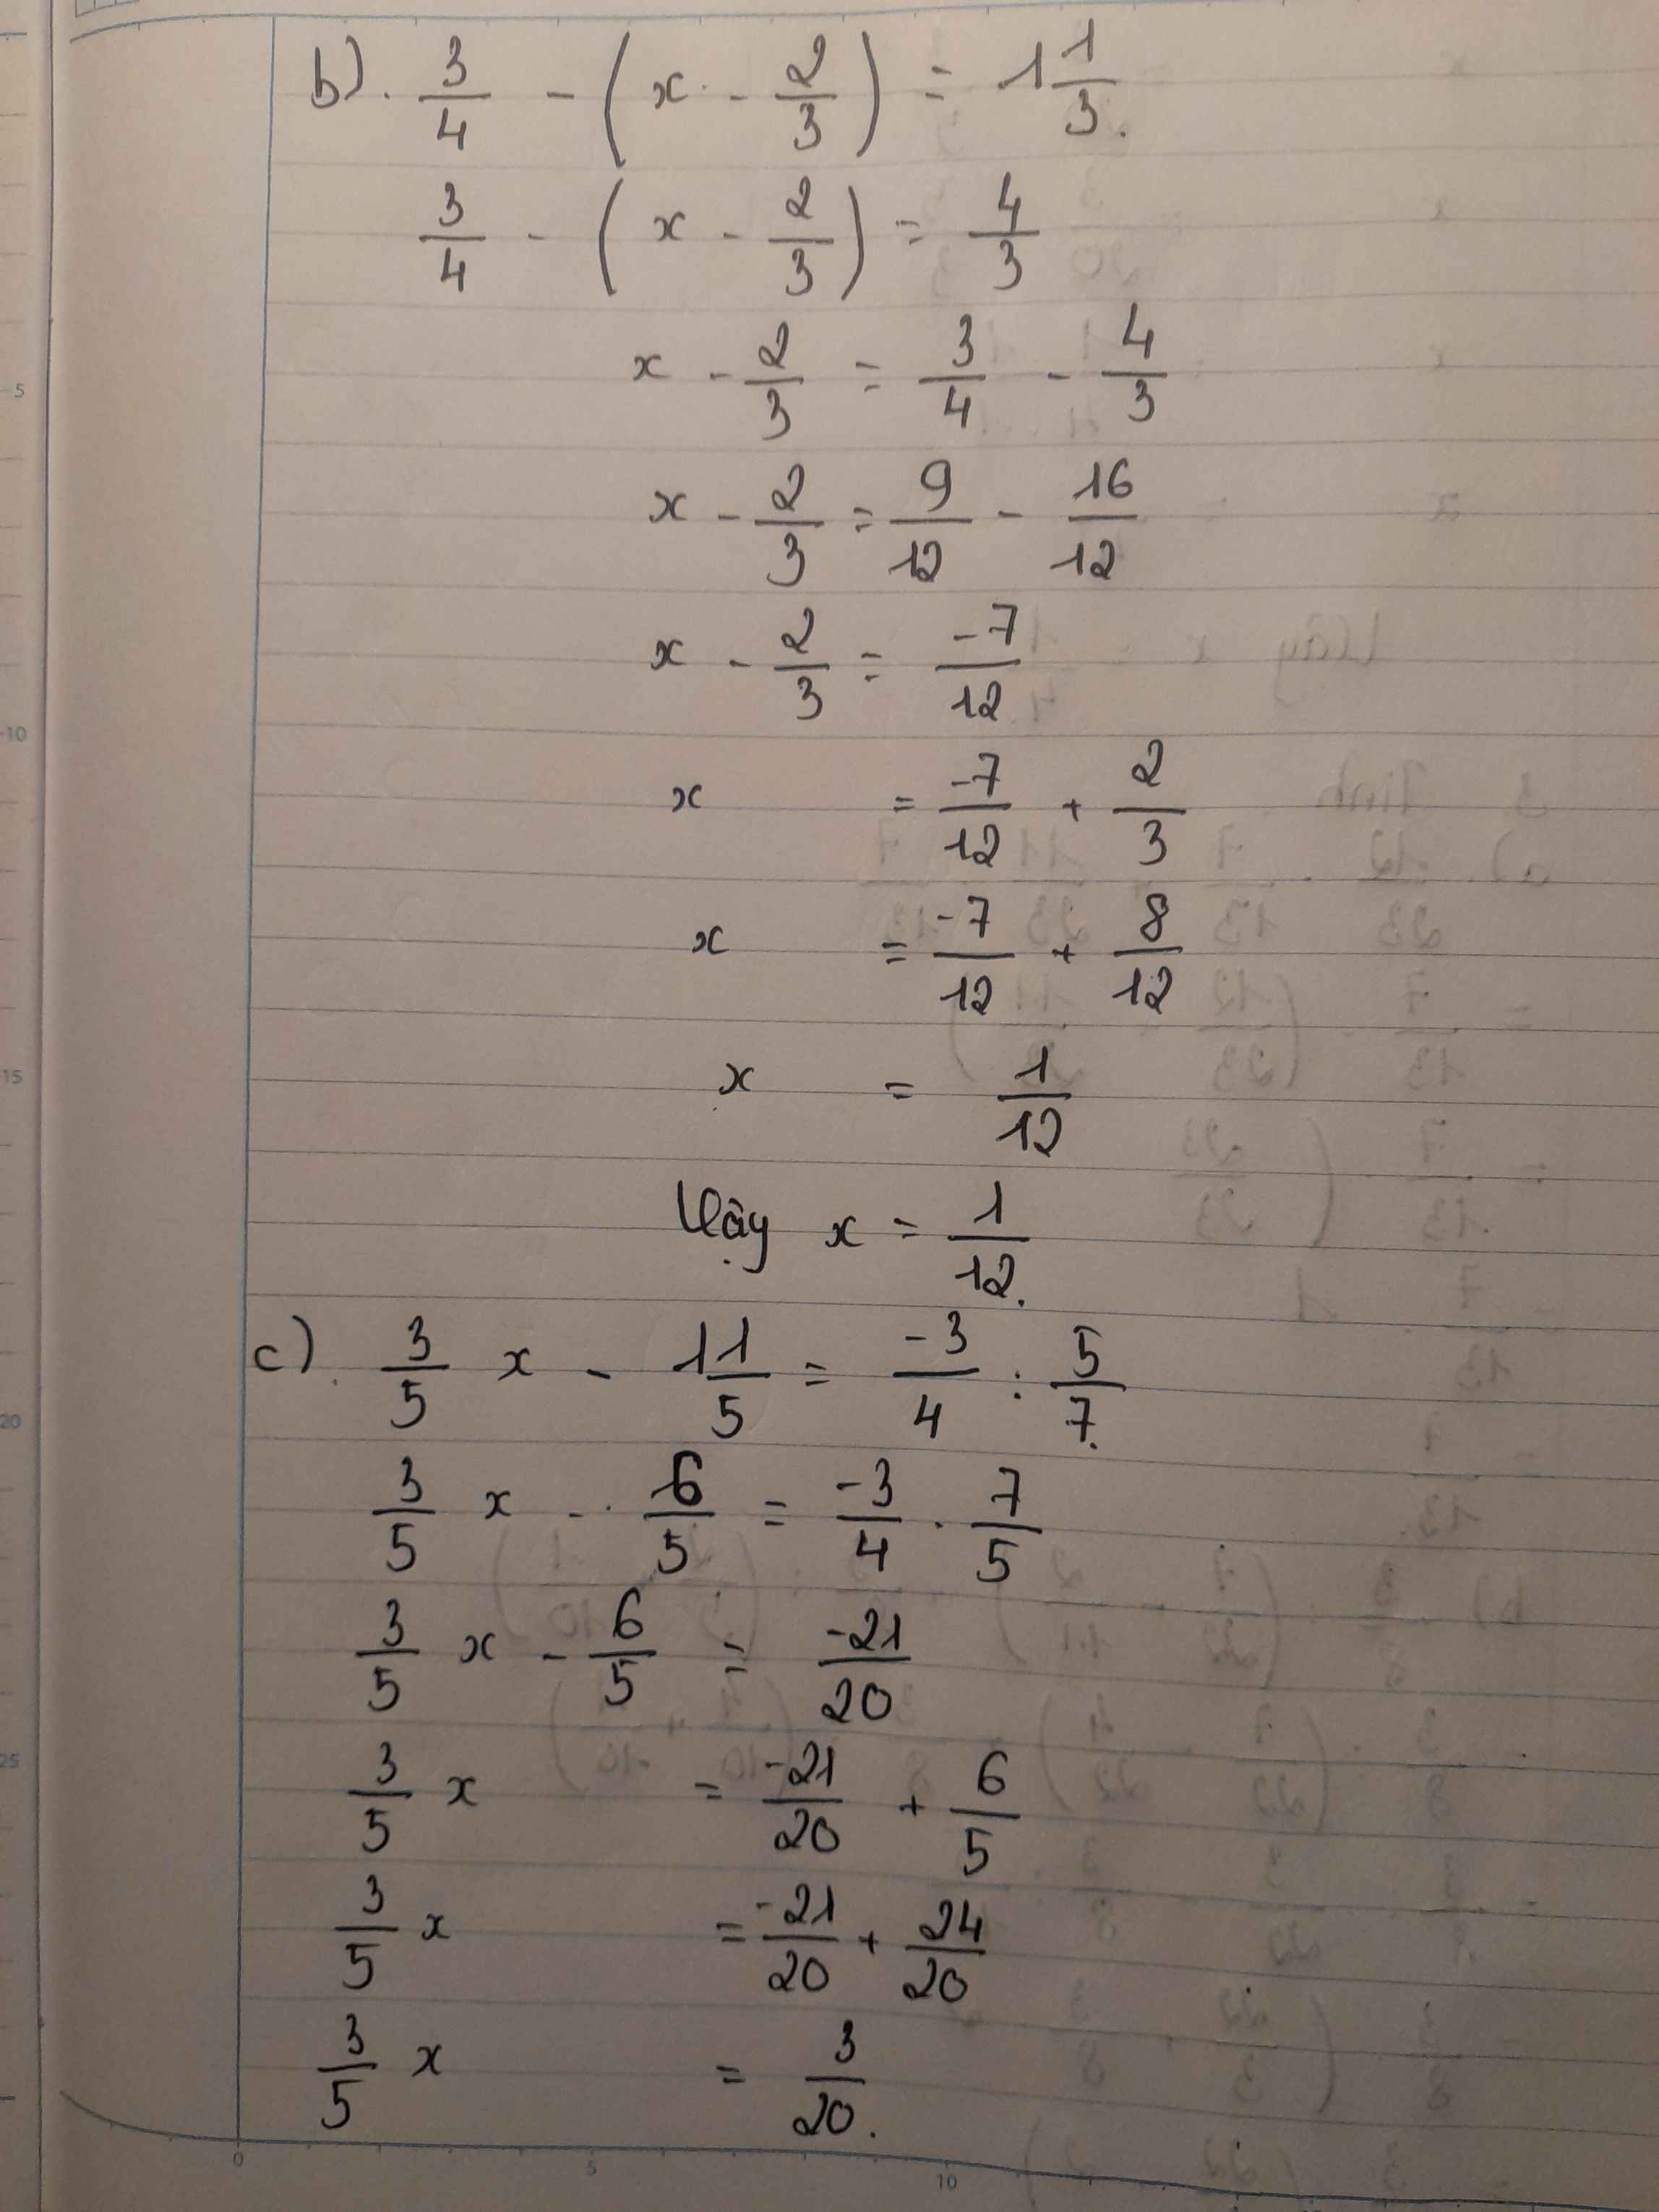 b). 3/4 - (x - 2/3) = 1 1/3.
3/4 - (x - 2/3) = 4/3
x - 2/3 = 3/4 - 4/3
x - 2/3 = 9/12 - 16/12
x - 2/3 = -7/12
x = -7/12 + 2/3
x = -7/12 + 8/12
x = 1/12
Vậy x = 1/12.
c). 3/5 x - 1 1/5 = -3/4 : 5/7.
3/5 x - 6/5 = -3/4 . 7/5
3/5 x - 6/5 = -21/20
3/5 x = -21/20 + 6/5
3/5 x = -21/20 + 24/20
3/5 x = 3/20.
5
10
15
20
25
0 5 10